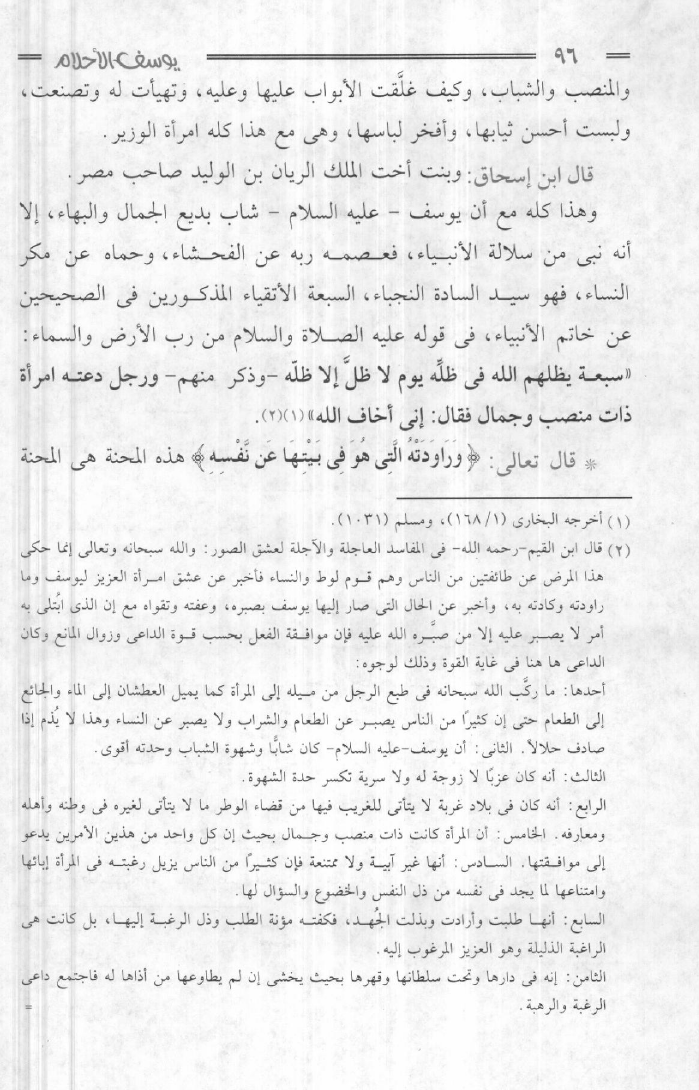 ٩٦ يوسف الأحلام
والمنصب والشباب، وكيف غلَّقت الأبواب عليها وعليه، وتهيأت له وتصنعت،
ولبست أحسن ثيابها، وأفخر لباسها، وهى مع هذا كله امرأة الوزير.
قال ابن إسحاق: وبنت أخت الملك الريان بن الوليد صاحب مصر.
وهذا كله مع أن يوسف - عليه السلام - شاب بديع الجمال والبهاء، إلا
أنه نبى من سلالة الأنبياء، فعصمه ربه عن الفحشاء، وحماه عن مكر
النساء، فهو سيد السادة النجباء، السبعة الأتقياء المذكورين فى الصحيحين
عن خاتم الأنبياء، فى قوله عليه الصلاة والسلام من رب الأرض والسماء:
«سبعة يظلهم الله فى ظلِّه يوم لا ظلَّ إلا ظلّه -وذكر منهم- ورجل دعته امرأة
ذات منصب وجمال فقال: إنى أخاف الله»(١)(٢).
* قال تعالى: ﴿وَرَاوَدَتْهُ الَّتِى هُوَ فِى بَيْتِهَا عَن نَّفْسِهِ﴾ هذه المحنة هى المحنة
(١) أخرجه البخارى (١/ ١٦٨)، ومسلم (١٠٣١).
(٢) قال ابن القيم-رحمه الله- فى المفاسد العاجلة والآجلة لعشق الصور: والله سبحانه وتعالى إنما حكى
هذا المرض عن طائفتين من الناس وهم قوم لوط والنساء فأخبر عن عشق امرأة العزيز ليوسف وما
راودته وكادته به، وأخبر عن الحال التى صار إليها يوسف بصبره، وعفته وتقواه مع إن الذى ابتُلى به
أمر لا يصبر عليه إلا من صبَّره الله عليه فإن موافقة الفعل بحسب قوة الداعى وزوال المانع وكان
الداعى ها هنا فى غاية القوة وذلك لوجوه:
أحدها: ما ركَّب الله سبحانه فى طبع الرجل من ميله إلى المرأة كما يميل العطشان إلى الماء والجائع
إلى الطعام حتى إن كثيرًا من الناس يصبر عن الطعام والشراب ولا يصبر عن النساء وهذا لا يُذم إذا
صادف حلالاً. الثانى: أن يوسف-عليه السلام- كان شابًّا وشهوة الشباب وحدته أقوى.
الثالث: أنه كان عزبًا لا زوجة له ولا سرية تكسر حدة الشهوة.
الرابع: أنه كان فى بلاد غربة لا يتأتى للغريب فيها من قضاء الوطر ما لا يتأتى لغيره فى وطنه وأهله
ومعارفه. الخامس: أن المرأة كانت ذات منصب وجمال بحيث إن كل واحد من هذين الأمرين يدعو
إلى موافقتها. السادس: أنها غير آبية ولا ممتنعة فإن كثيرًا من الناس يزيل رغبته فى المرأة إبائها
وامتناعها لما يجد فى نفسه من ذل النفس والخضوع والسؤال لها.
السابع: أنها طلبت وأرادت وبذلت الجُهد، فكفته مؤنة الطلب وذل الرغبة إليها، بل كانت هى
الراغبة الذليلة وهو العزيز المرغوب إليه.
الثامن: إنه فى دارها وتحت سلطانها وقهرها بحيث يخشى إن لم يطاوعها من أذاها له فاجتمع داعى
الرغبة والرهبة. =